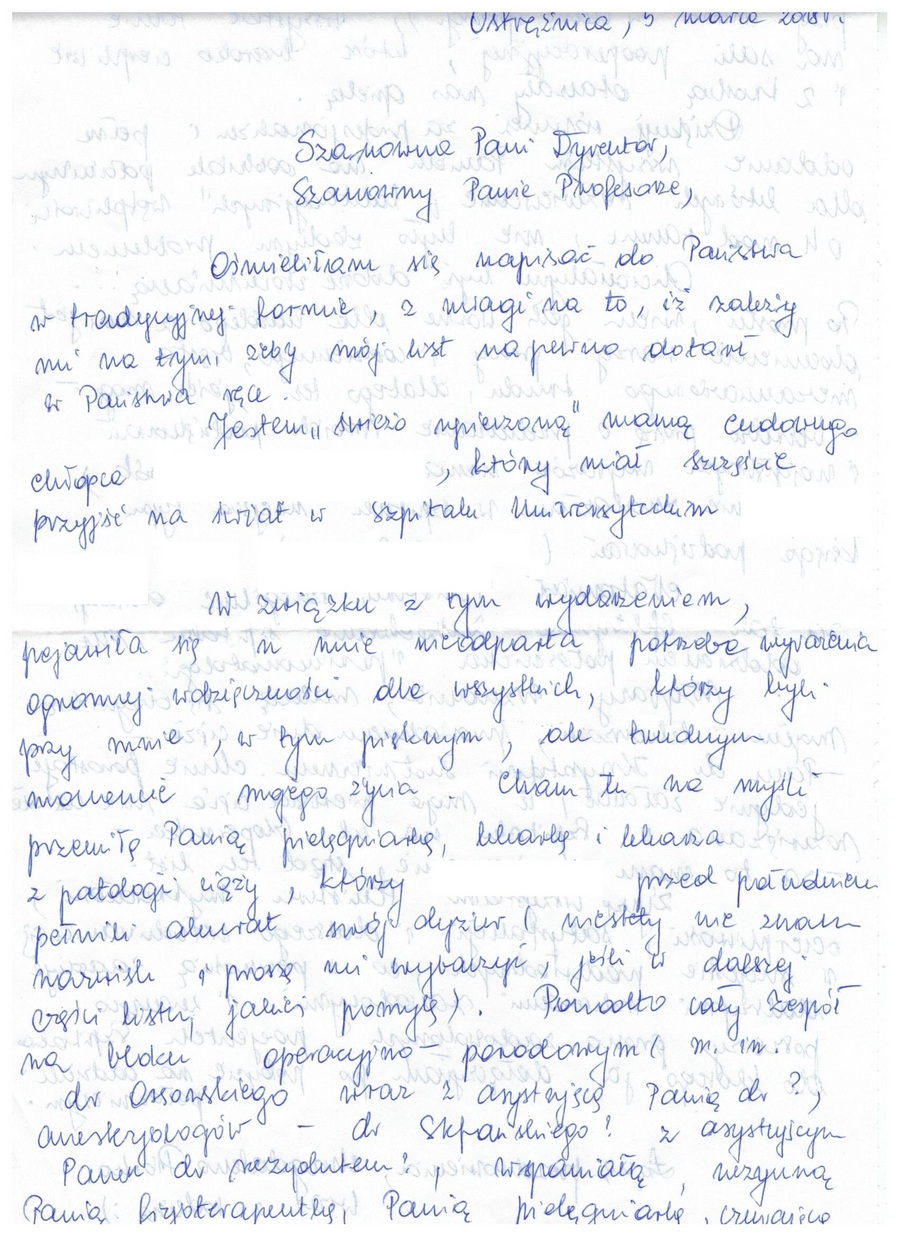 Ostrężnica, 5 marca 2018r.
Szanowna Pani Dyrektor,
Szanowny Panie Profesorze,
Ośmieliłam się napisać do Państwa
w tradycyjnej formie, z uwagi na to, iż zależy
mi na tym, żeby mój list na pewno dotarł
w Państwa ręce.
Jestem „świeżo upieczoną" mamą cudownego
chłopca , który miał szczęście
przyjść na świat w Szpitalu Uniwersyteckim
W związku z tym wydarzeniem,
pojawiła się u mnie nieodparta potrzeba wyrażenia
ogromnej wdzięczności dla wszystkich, którzy byli
przy mnie, w tym pięknym, ale trudnym
momencie mojego życia. Mam tu na myśli
przemiłą Panią pielęgniarkę, lekarkę i lekarza
z patologii ciąży, którzy przed południem
pełnili akurat swój dyżur (niestety nie znam
nazwisk i proszę mi wybaczyć, jeśli w dalszej
części listu, jakieś pomylę). Ponadto cały Zespół
na bloku operacyjno-porodowym (m.in.
dr Ossowskiego wraz z asystującą Panią dr ?,
anestezjologów – dr Skfańskiego? z asystującym
Panem dr rezydentem?, wspaniałą,
Panią fizjoterapeutkę, Panią pielęgniarkę, czuwającą